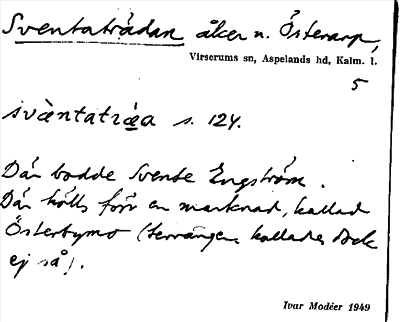 Sventaträdan åker n. Österarp,
Virserums sn, Aspelands hd, Kalm. l.
5
svèntatræa s. 124.
Där bodde Svente Engström.
Där hölls förr en marknad, kallad
Österbymo (terrängen kallades dock
ej så).
Ivar Modéer 1949